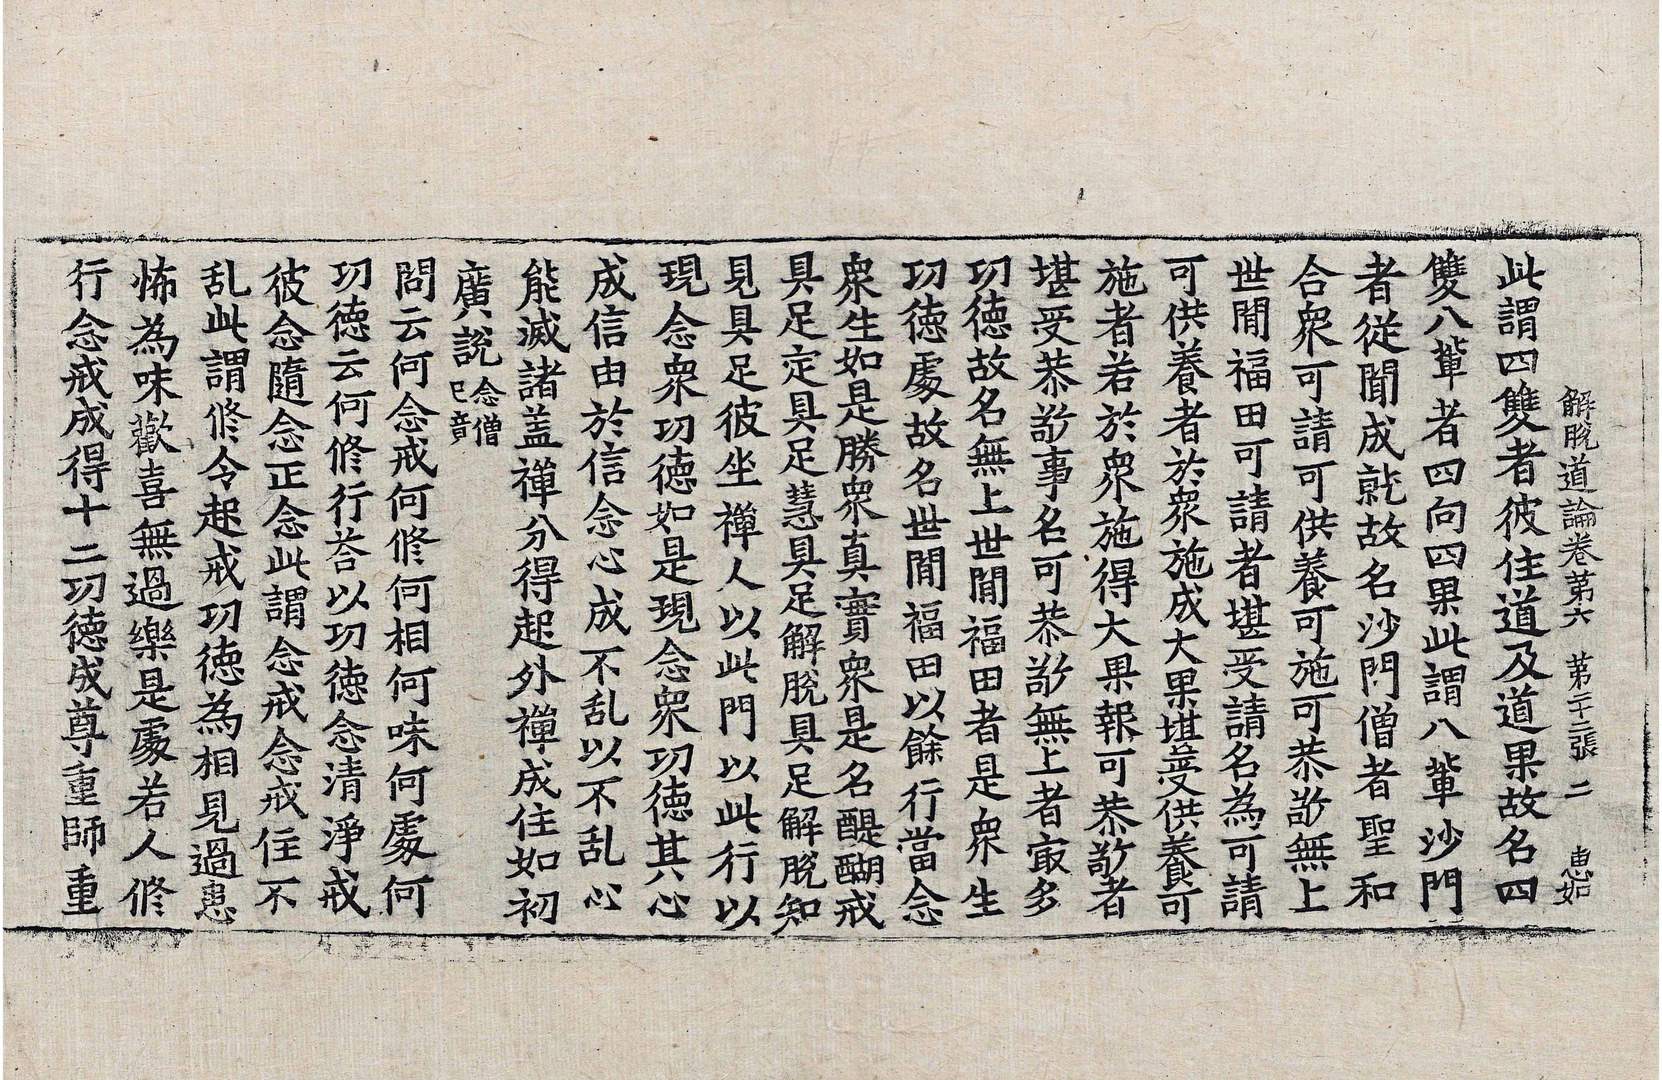 解脫道論卷第六 第二十三張 二 惠如
此謂四雙者彼住道及道果故名四
雙八輩者四向四果此謂八輩沙門
者從聞成就故名沙門僧者聖和
合衆可請可供養可施可恭敬無上
世間福田可請者堪受請名為可請
可供養者於衆施成大果堪受供養可
施者若於衆施得大果報可恭敬者
堪受恭敬事名可恭敬無上者㝡多
功德故名無上世間福田者是衆生
功德處故名世間福田以餘行當念
衆生如是勝衆真實衆是名醍醐戒
具足定具足慧具足解脫具足解脫知
見具足彼坐禪人以此門以此行以
現念衆功德如是現念衆功德其心
成信由於信念心成不乱以不乱心
能滅諸盖禪分得起外禪成住如初
廣說 念僧已音
問云何念戒何修何相何味何處何
功德云何修行荅以功德念清淨戒
彼念隨念正念此謂念戒念戒住不
乱此謂修令起戒功德為相見過患
怖為味歡喜無過樂是處若人修
行念戒成得十二功德成尊重師重